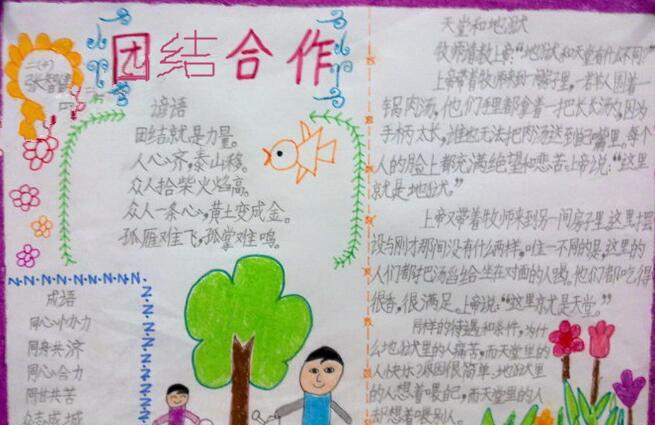 团结合作
二(4)
张智慧
谚语
团结就是力量。
人心齐,泰山移。
众人拾柴火焰高。
众人一条心,黄土变成金。
孤雁难飞,孤掌难鸣。
成语
同心协力
同舟共济
同心合力
同甘共苦
众志成城
天堂和地狱
牧师请教上帝:“地狱和天堂有什么不同?”
上帝带着牧师来到一间房子里。一群人围着一
锅肉汤,他们手里都拿着一把长长汤勺,因为
手柄太长,谁也无法把肉汤送到自己嘴里。每个
人的脸上都充满绝望和悲苦。上帝说:“这里
就是地狱。”
上帝又带着牧师来到另一间房子里。这里摆
设与刚才那间没有什么两样,唯一不同的是,这里的
人们都把汤舀给坐在对面的人喝。他们都吃得
很香,很满足。上帝说:“这里就是天堂。”
同样的待遇和条件,为什
么地狱里的人痛苦,而天堂里的
人快乐?原因很简单:地狱里
的人想着喂自己,而天堂里的人
却想着喂别人。